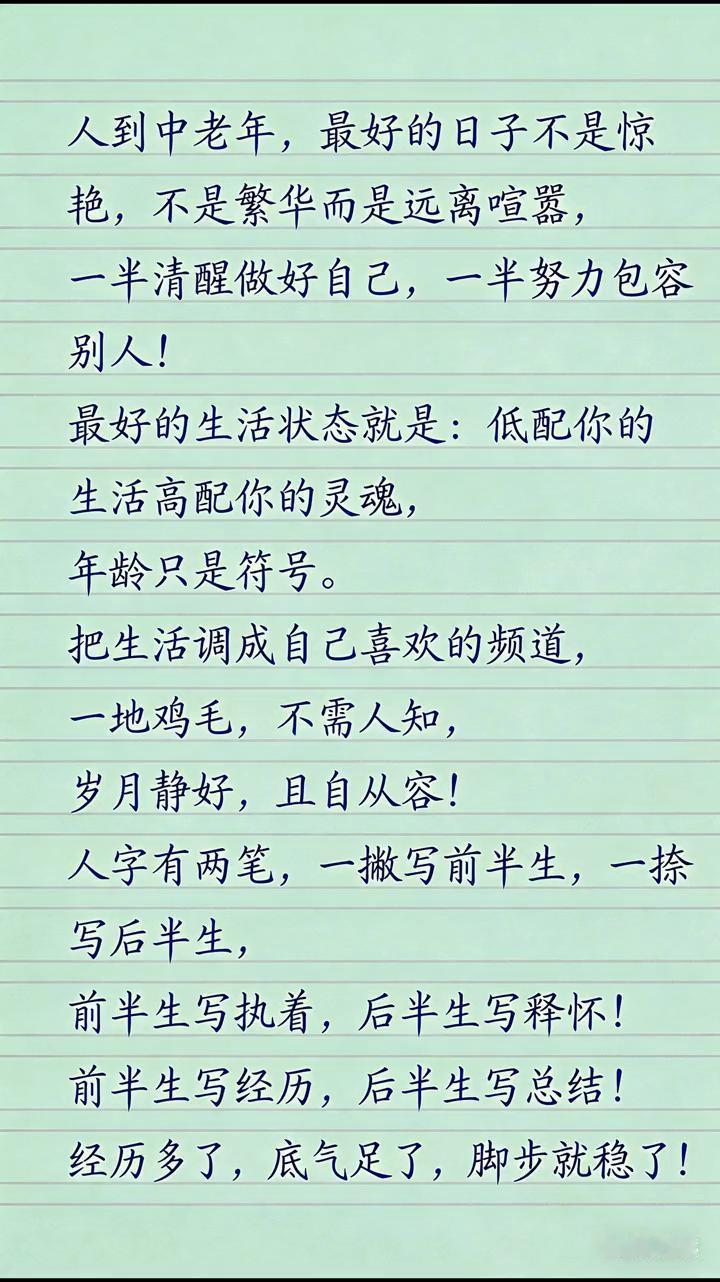 人到中老年，最好的日子不是惊
艳，不是繁华而是远离喧嚣，
一半清醒做好自己，一半努力包容
别人！
最好的生活状态就是：低配你的
生活高配你的灵魂，
年龄只是符号。
把生活调成自己喜欢的频道，
一地鸡毛，不需人知，
岁月静好，且自从容！
人字有两笔，一撇写前半生，一捺
写后半生，
前半生写执着，后半生写释怀！
前半生写经历，后半生写总结！
经历多了，底气足了，脚步就稳了！